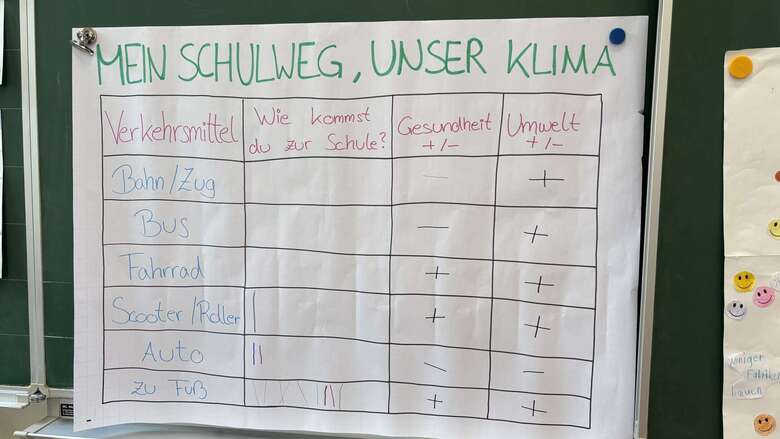 MEIN SCHULWEG, UNSER KLIMA
Verkehrsmittel Wie kommst du zur Schule? Gesundheit +/- Umwelt +/-
Bahn/Zug — +
Bus — +
Fahrrad + +
Scooter/Roller | + +
Auto || — —
zu Fuß + +
weniger
Fabriken
bauen